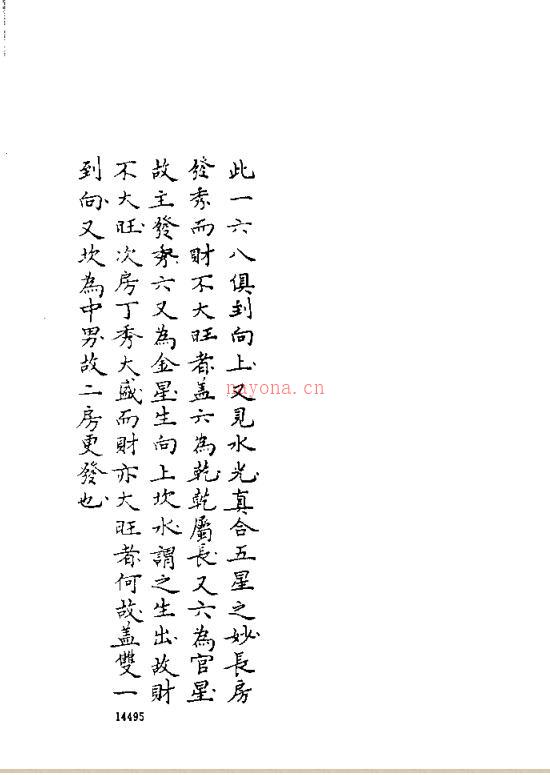 此一六八俱到向上又見水光真合五星之妙長房
發秀而財不大旺者蓋六為乾乾屬長又六為官星
故主發秀六又為金星生向上坎水謂之生出故財
不大旺次房丁秀大盛而財亦大旺者何故蓋雙一
到向又坎為中男故二房更發也
nayona.cn
14495